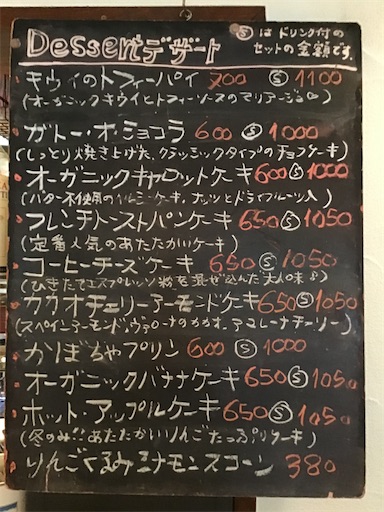 Dessert デザート
Ⓢ は ドリンク付の
セットの金額です。
キウィのトフィーパイ 700 Ⓢ 1100
(オーガニックキウイとトフィーソースのマリアージュ♡)
ガトー・オ・ショコラ 600 Ⓢ 1000
(しっとり焼き上げた、クラッシックタイプのチョコケーキ)
オーガニックキャロットケーキ 600 Ⓢ 1000
(バター不使用のヘルシーケーキ、ナッツとドライフルーツ入)
フレンチトーストパンケーキ 650 Ⓢ 1050
(定番人気のあたたかいケーキ)
コーヒーチーズケーキ 650 Ⓢ 1050
(ひきたてエスプレッソ粉を混ぜ込んだ大人の味♪)
カカオチェリーアーモンドケーキ 650 Ⓢ 1050
(スペインアーモンド、ヴァローナのカカオ、アマレーナチェリー)
かぼちゃプリン 600 Ⓢ 1000
オーガニックバナナケーキ 650 Ⓢ 1050
ホット・アップルケーキ 650 Ⓢ 1050
(冬のみ!! あたたかいりんごたっぷりケーキ)
りんごくるみシナモンスコーン 380